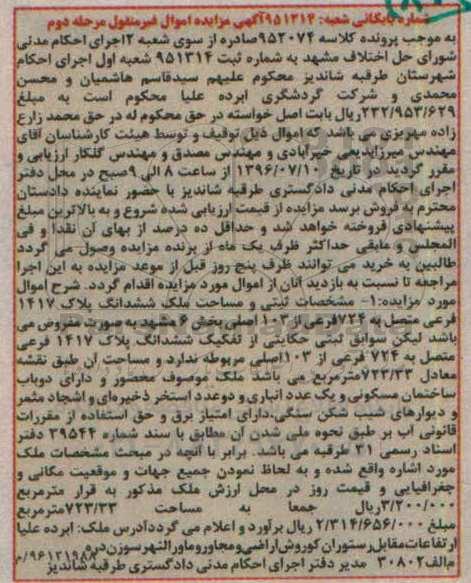 شماره بایگانی شعبه: ۹۵۱۳۱۴آگهی مزایده اموال غیرمنقول مرحله دوم
به موجب پرونده کلاسه ۹۵۲۰۷۴صادره از سوی شعبه ۲اجرای احکام مدنی
شورای حل اختلاف مشهد به شماره ثبت ۹۵۱۳۱۴ شعبه اول اجرای احکام
شهرستان طرقبه شاندیز محکوم علیهم سیدقاسم هاشمیان و محسن
محمدی و شرکت گردشگری ابرده علیا محکوم است به مبلغ
۲۳۲/۹۵۳/۶۲۹ریال بابت اصل خواسته در حق محکوم له در حق محمد زارع
زاده مهریزی می باشد که اموال ذیل توقیف و توسط هیئت کارشناسان آقای
مهندس میرزابدیعی خیرآبادی و مهندس مصدق و مهندس گلکار ارزیابی و
مقرر گردید در تاریخ ۱۳۹۶/۰۷/۱۰ از ساعت ۸ الی ۹صبح در محل دفتر
اجرای احکام مدنی دادگستری طرقبه شاندیز با حضور نماینده دادستان
محترم به فروش برسد مزایده از قیمت ارزیابی شده شروع و به بالاترین مبلغ
پیشنهادی فروخته خواهد شد و حداقل ده درصد از بهای آن نقدا و فی
المجلس و مابقی حداکثر ظرف یک ماه از برنده مزایده وصول می گردد
طالبین به خرید می توانند ظرف پنج روز قبل از موعد مزایده به این اجرا
مراجعه تا نسبت به بازدید آنان از اموال مورد مزایده اقدام گردد. شرح اموال
مورد مزایده:۱- مشخصات ثبتی و مساحت ملک ششدانگ پلاک ۱۴۱۷
فرعی متصل به ۷۲۴فرعی از ۱۰۳ اصلی بخش ۶ مشهد به صورت مفروض می
باشد لیکن سوابق ثبتی حکایتی از تفکیک ششدانگ پلاک ۱۴۱۷ فرعی
متصل به ۷۲۴ فرعی از ۱۰۳اصلی مربوطه ندارد و مساحت آن طبق نقشه
معادل ۷۲۳/۳۳مترمربع می باشد ملک موصوف محصور و دارای دوباب
ساختمان مسکونی و یک عدد انباری و دوعدد استخر ذخیره‌ای و اشجاد مثمر
و دیوارهای شیب شکن سنگی.دارای امتیاز برق و حق استفاده از مقررات
قانونی آب بر طبق نحوه ملی شدن آن مطابق با سند شماره ۳۹۵۴۴ دفتر
اسناد رسمی ۳۱ طرقبه می باشد. برابر با آنچه در مبحث مشخصات ملک
مورد اشاره واقع شده و به لحاظ نمودن جمیع جهات و موقعیت مکانی و
جغرافیایی و قیمت روز در محل ارزش ملک مذکور به قرار مترمربع
۳/۲۰۰/۰۰۰ریال جمعا به مساحت ۷۲۳/۳۳مترمربع
مبلغ ۲/۳۱۴/۶۵۶/۰۰۰ ریال برآورد و اعلام می گرددآدرس ملک: ابرده علیا
ارتفاعات مقابل رستوران کوروش اراضی و مجاور و ماورالنهر سوزن دره
م/۹۶۱۲۱۹۸۸
م‌الف۳۰۸۰۲ مدیر دفتر اجرای احکام مدنی دادگستری طرقبه شاندیز